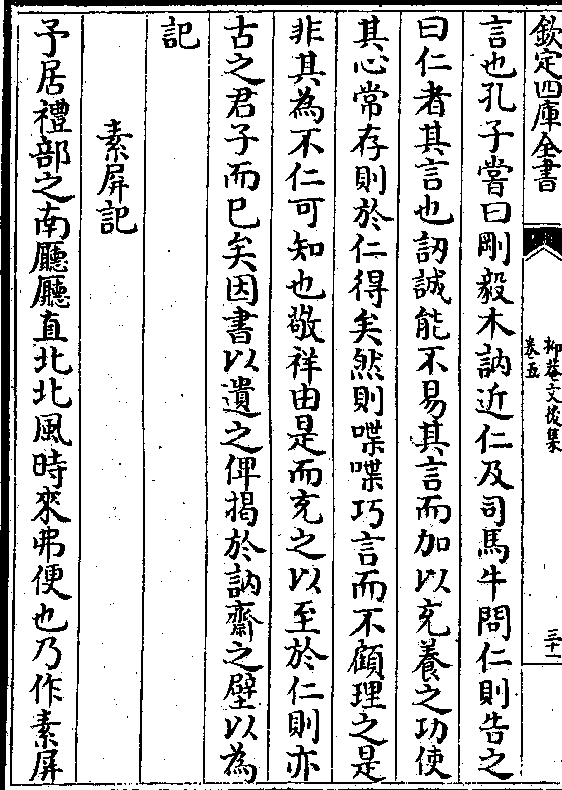 欽定四庫全書
抑菴文後集
卷五
三十一
言也孔子嘗曰剛毅木訥近仁及司馬牛問仁則告之
曰仁者其言也訒誠能不易其言而加以充養之功使
其心常存則於仁得矣然則喋喋巧言而不顧理之是
非其為不仁可知也敬祥由是而充之以至於仁則亦
古之君子而已矣因書以遺之俾揭於訥齋之壁以為
記
素屏記
予居禮部之南廳廳直北北風時來弗便也乃作素屏